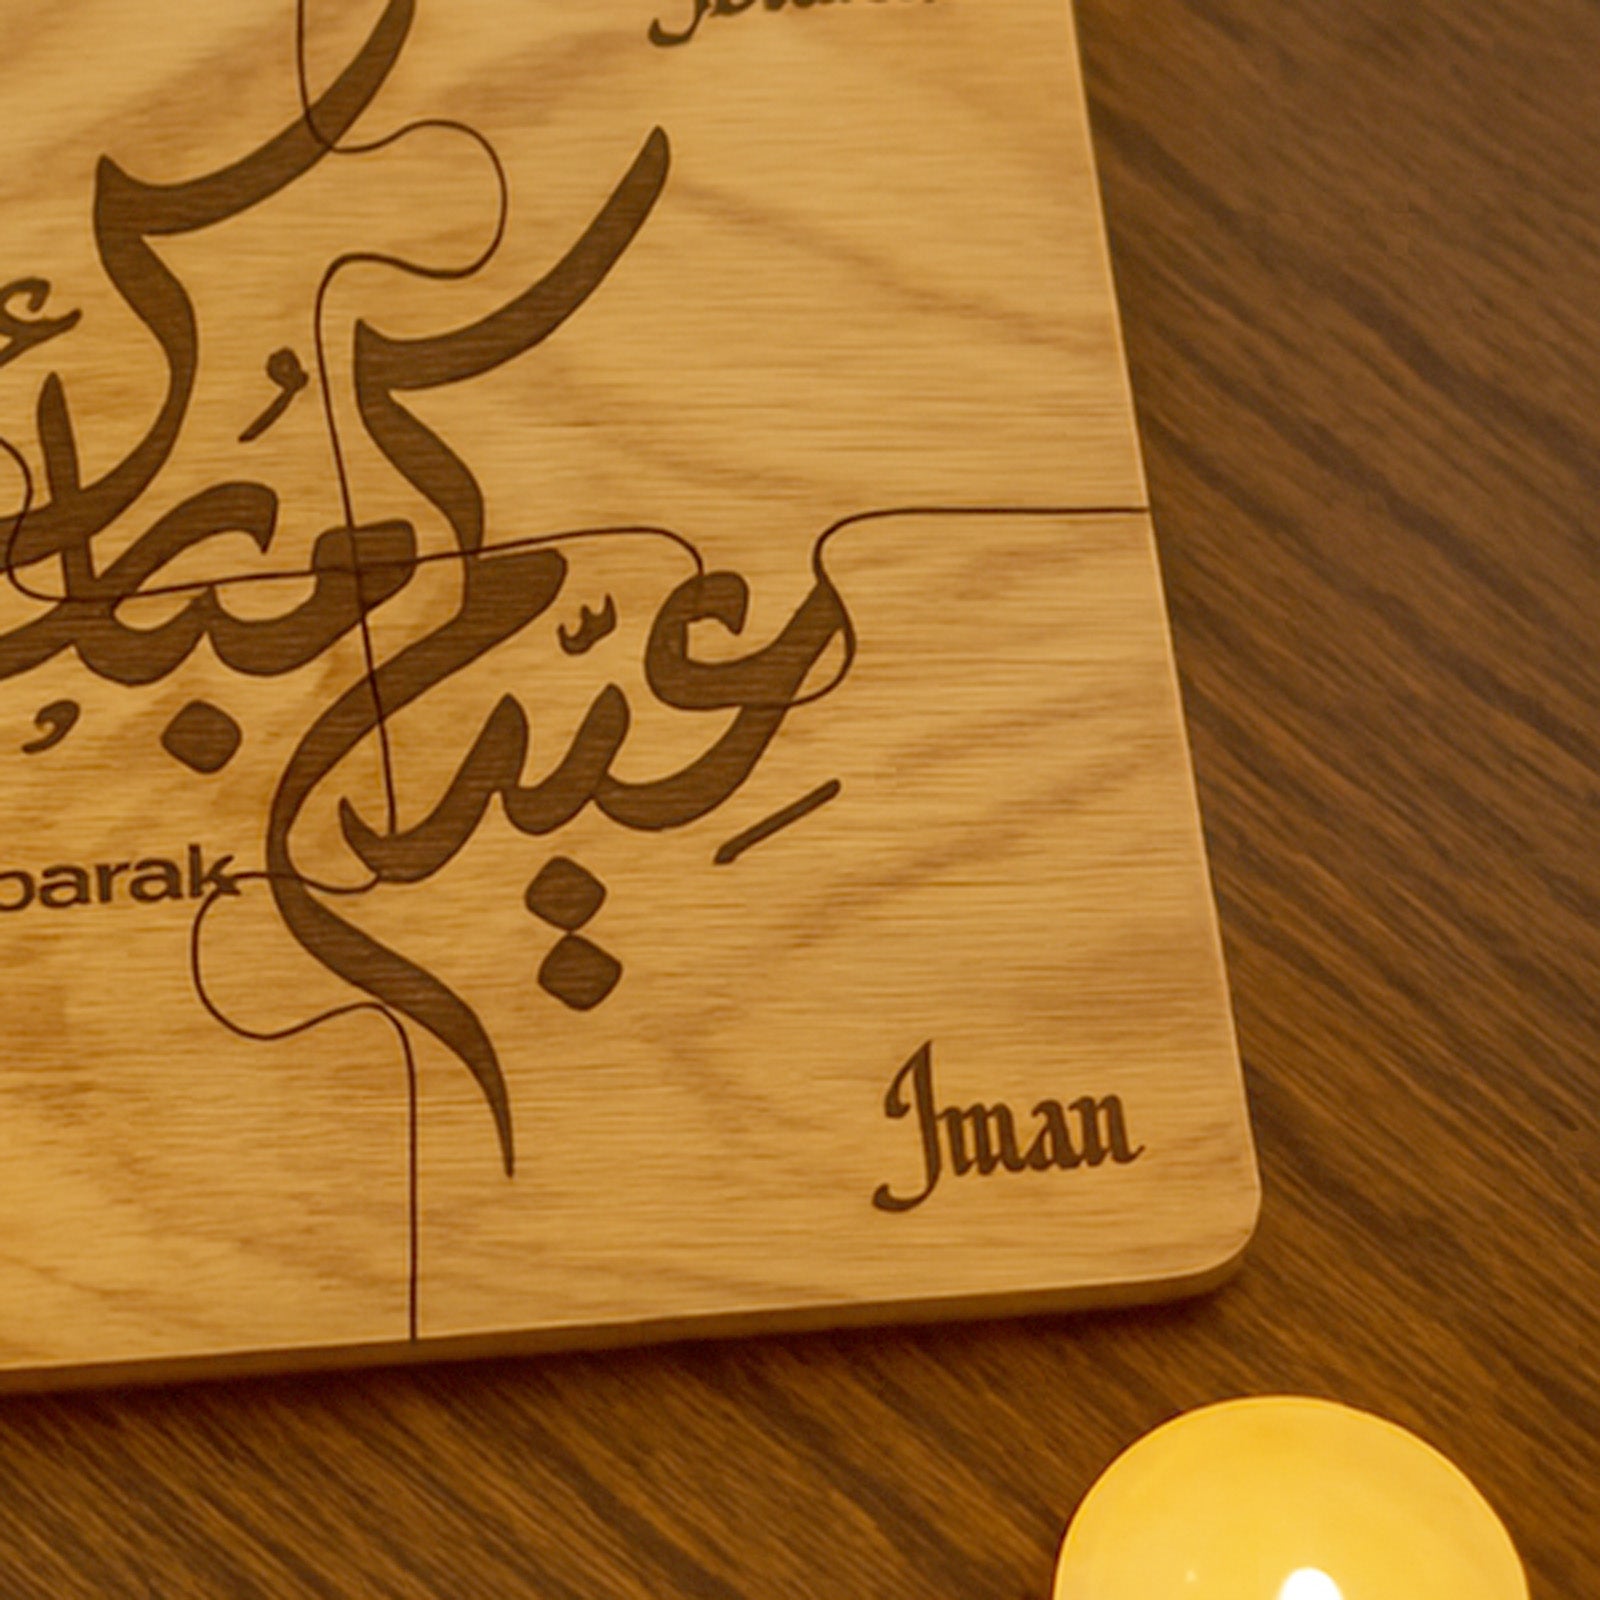 عيد مبارك
barak
Iman